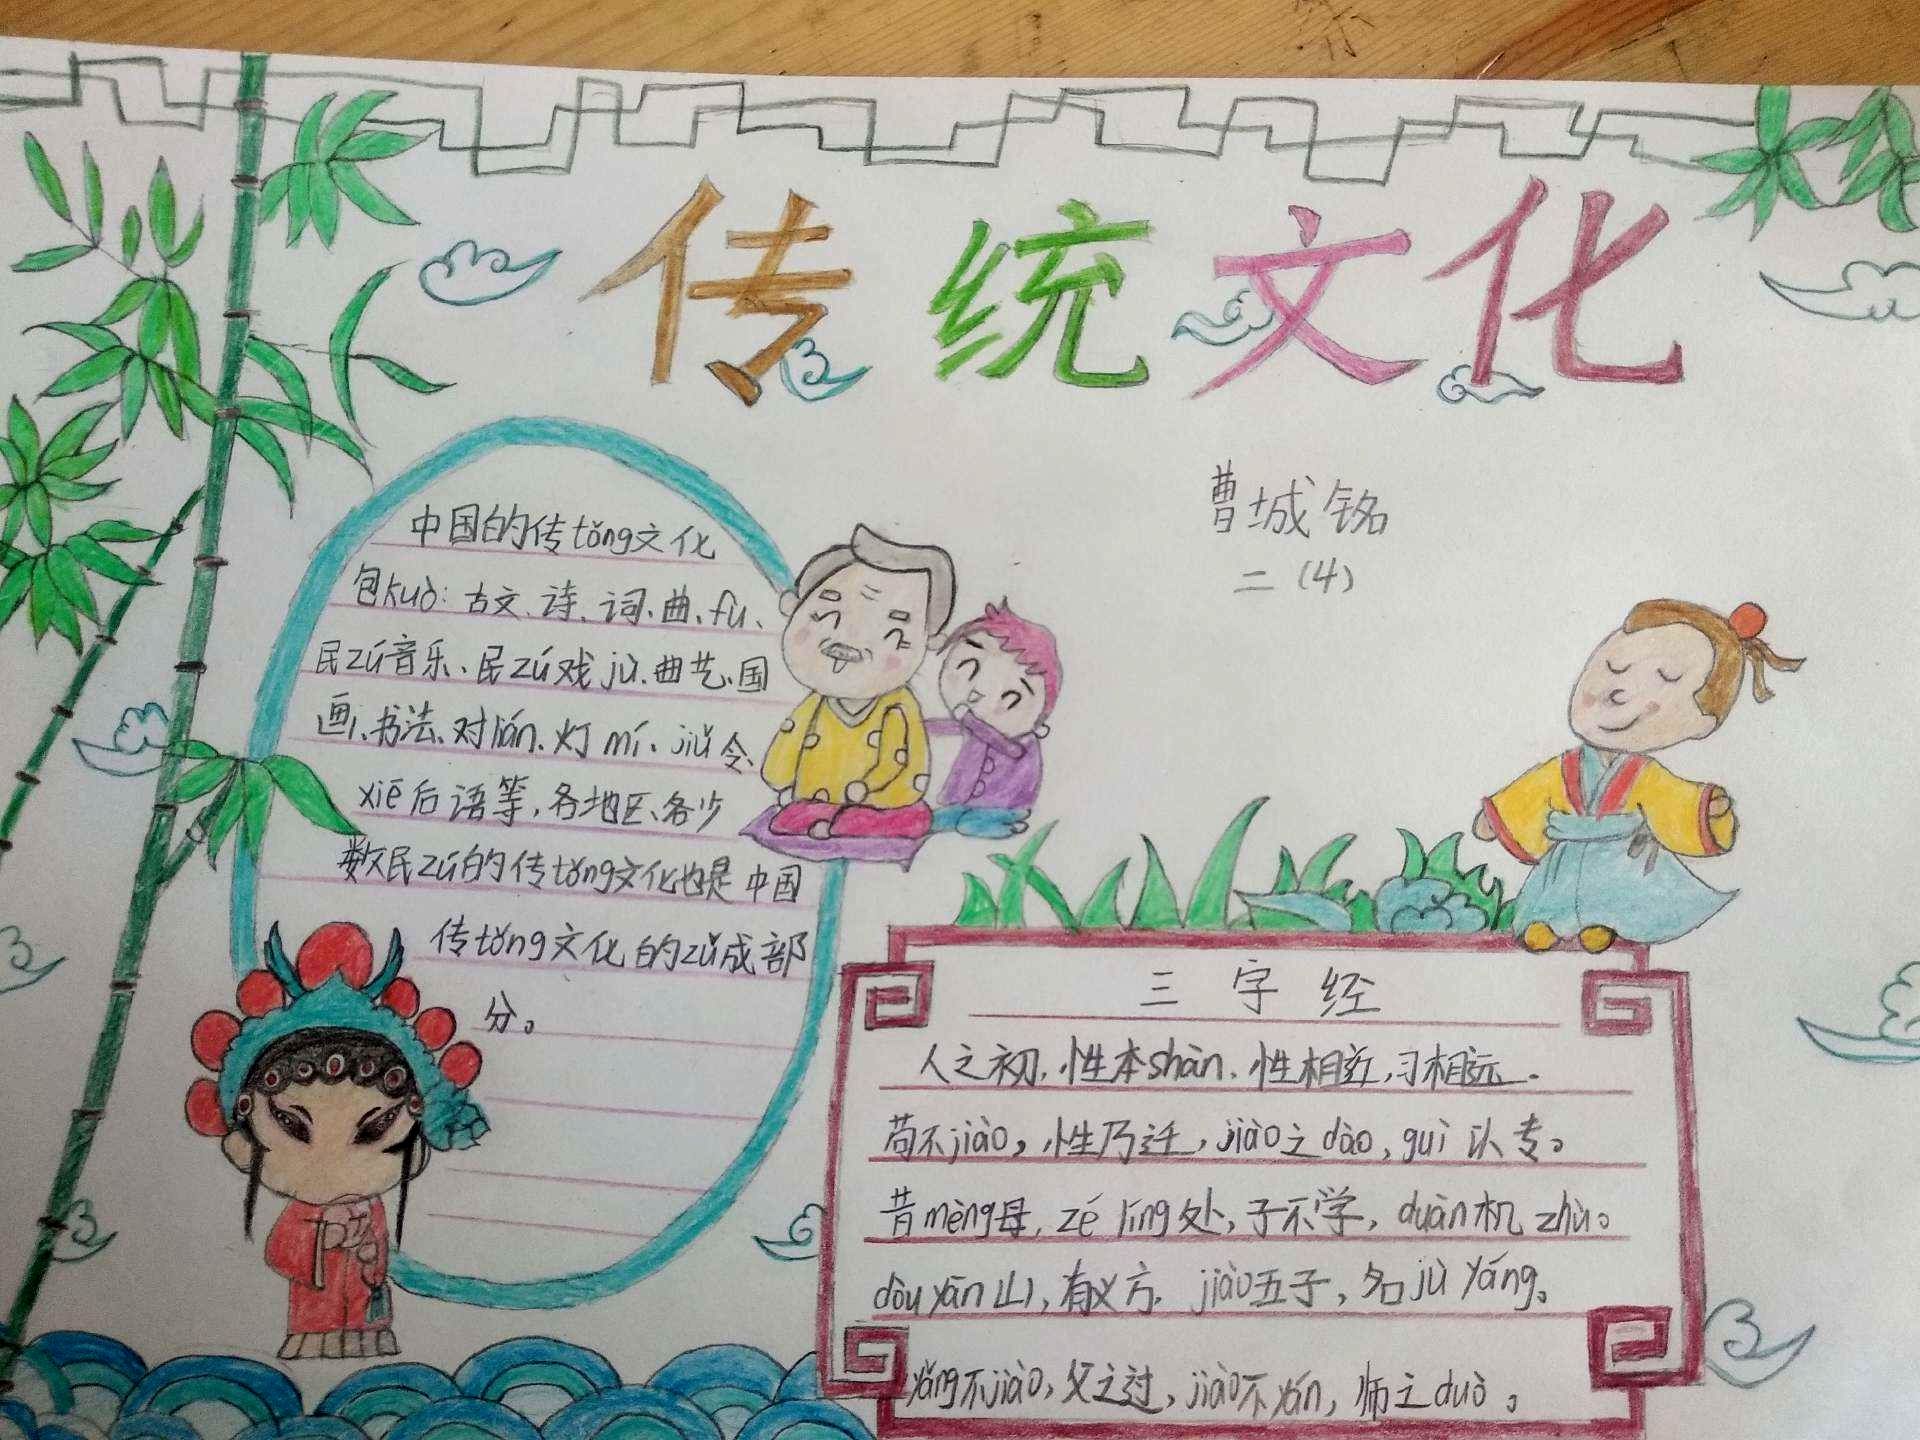 传统文化
曹城铭
二（4）
中国的传tǒng文化
包kuò：古文、诗、词、曲、fù、
民zú音乐、民zú戏jù、曲艺、国
画、书法、对lián、灯mí、jiǔ令、
xiē后语等，各地区、各少
数民zú的传tǒng文化也是中国
传tǒng文化的zǔ成部
分。
三字经
人之初，性本shàn，性相近，习相远。
苟不jiào，性乃迁，jiào之dào，guì以专。
昔mèng母，zé lín处，子不学，duàn机zhù。
dòu yān山，有义方，jiào五子，名jù yáng。
yǎng不jiào，父之过，jiào不yán，师之duò。